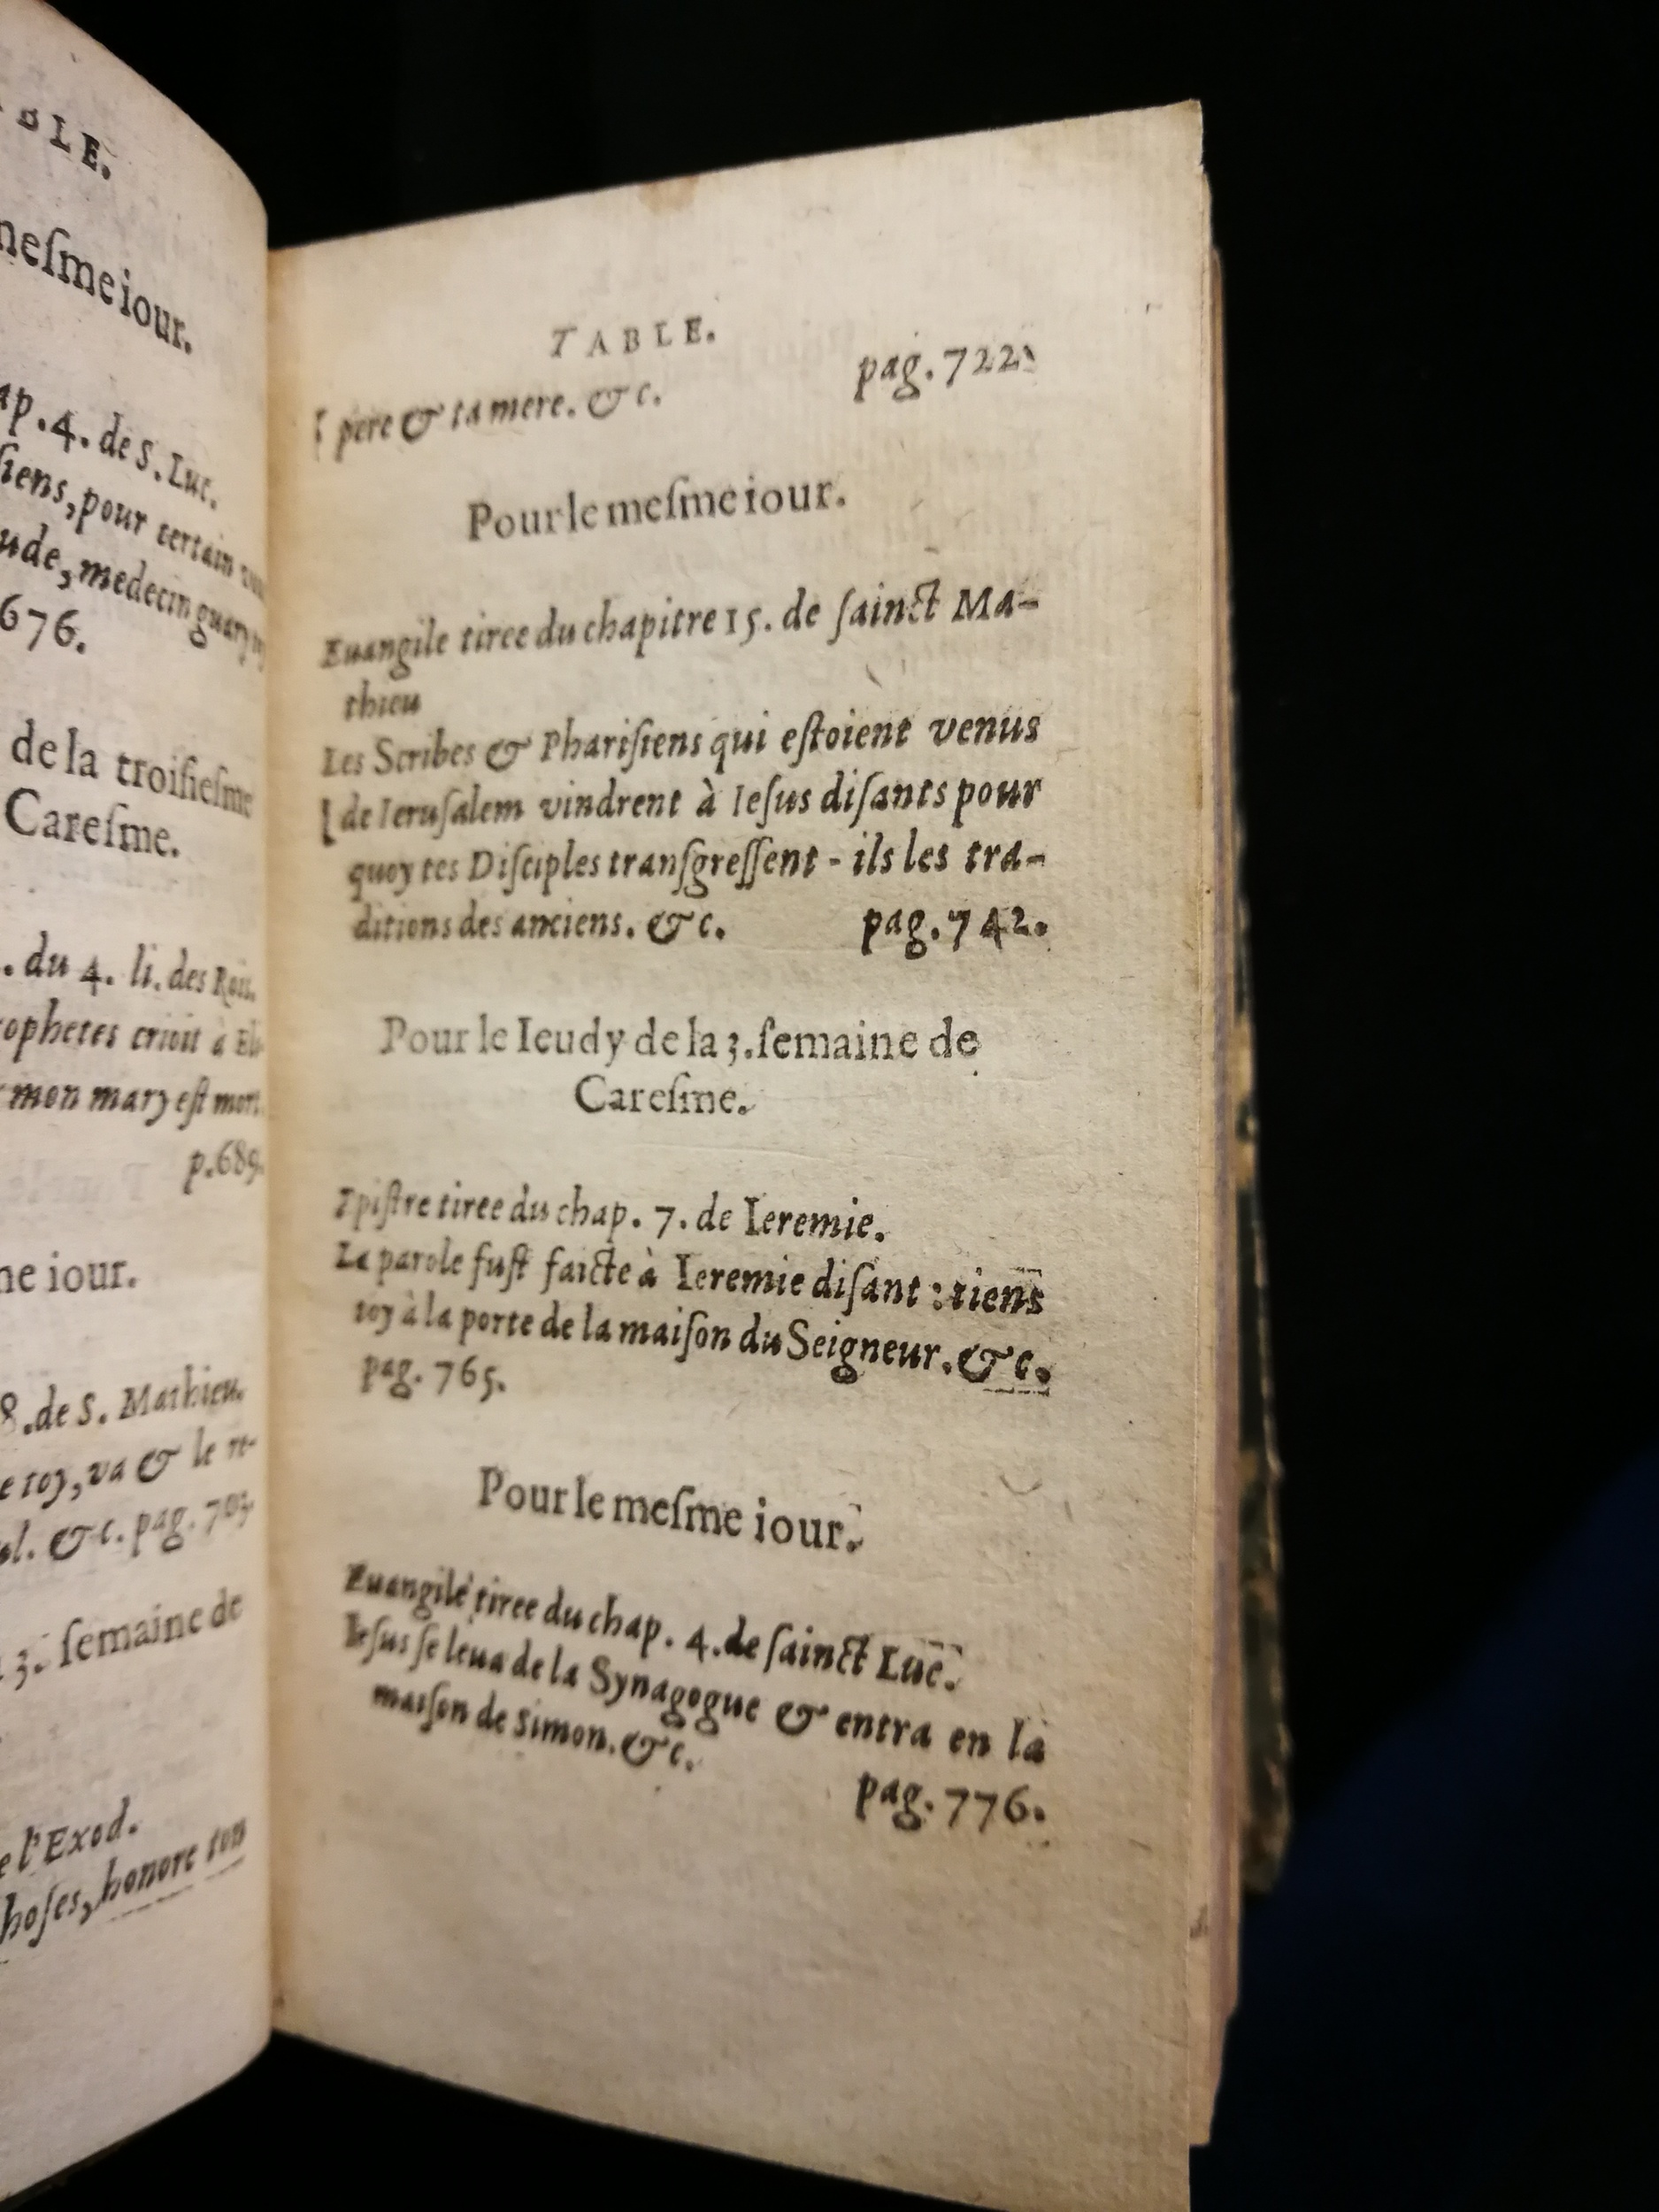 BLE.
meſme iour.
ap. 4. de S. Luc.
ſiens, pour certain
ude, medecin guary
676.
de la troiſieſme
Careſme.
. du 4. li. des Rois.
ophetes crioit à
mon mary eſt mort
p. 689.
me iour.
8. de S. Mathieu.
e toy, va & le re-
ol. & c. pag. 703.
3. ſemaine de
e l'Exod.
hoſes, honore ton
TABLE.
pere & ta mere. & c. pag. 722.
Pour le meſme iour.
Euangile tiree du chapitre 15. de ſainct Ma-
thieu
Les Scribes & Phariſiens qui eſtoient venus
de Ieruſalem vindrent à Ieſus diſants pour
quoy tes Diſciples tranſgreſſent - ils les tra-
ditions des anciens. & c. pag. 742.
Pour le Ieudy de la 3. ſemaine de
Careſme.
Epiſtre tiree du chap. 7. de Ieremie.
La parole fuſt faicte à Ieremie diſant : tiens
toy à la porte de la maiſon du Seigneur. & c.
pag. 765.
Pour le meſme iour.
Euangile tiree du chap. 4. de ſainct Luc.
Ieſus ſe leua de la Synagogue & entra en la
maiſon de Simon. & c.
pag. 776.